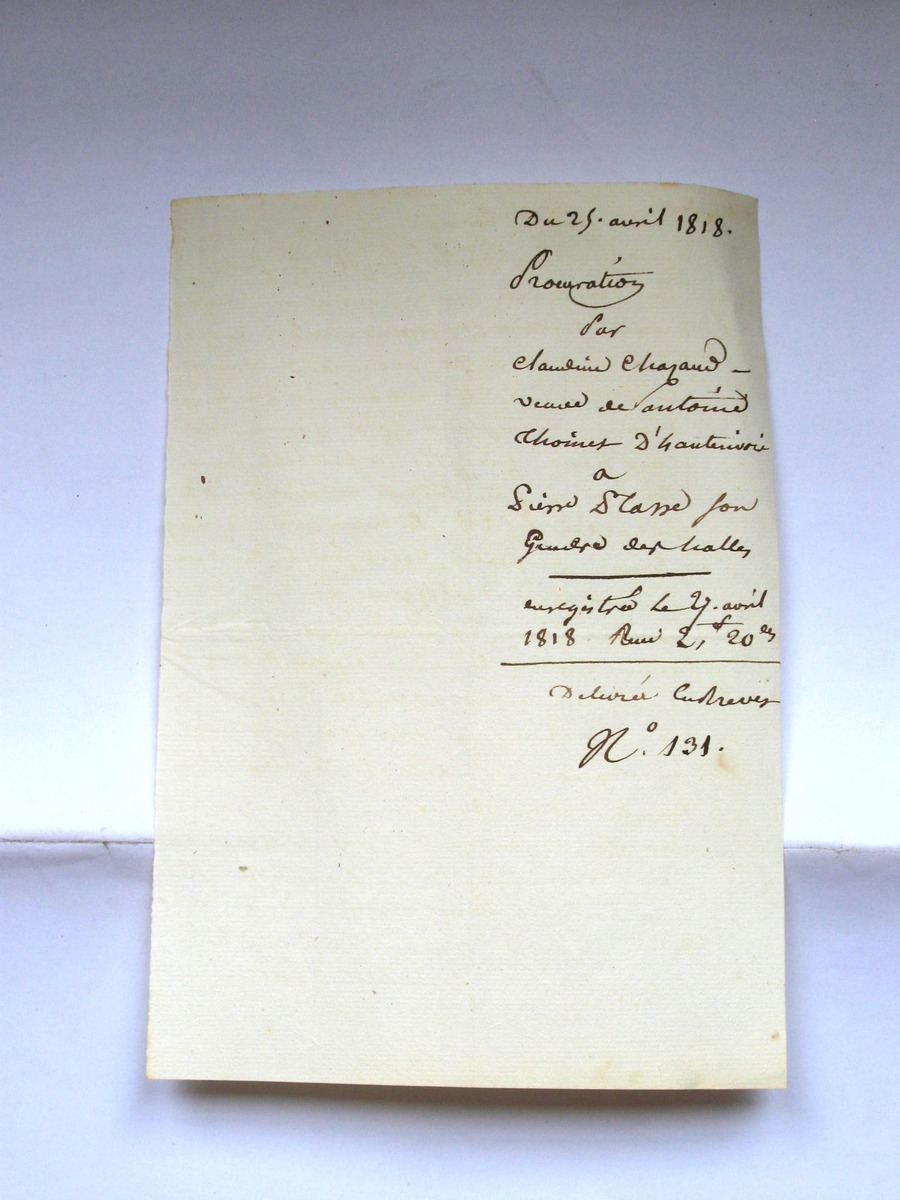 Du 25. avril 1818.
Procuration
Par
Claudine Chazaud –
veuve de antoine
Thoinet D'hauterivoire
a
Pierre son
Gendre des halles
enregistrée Le 27. avril
1818 2,f 20 es
Délivrée En Brevet
N.o 131.